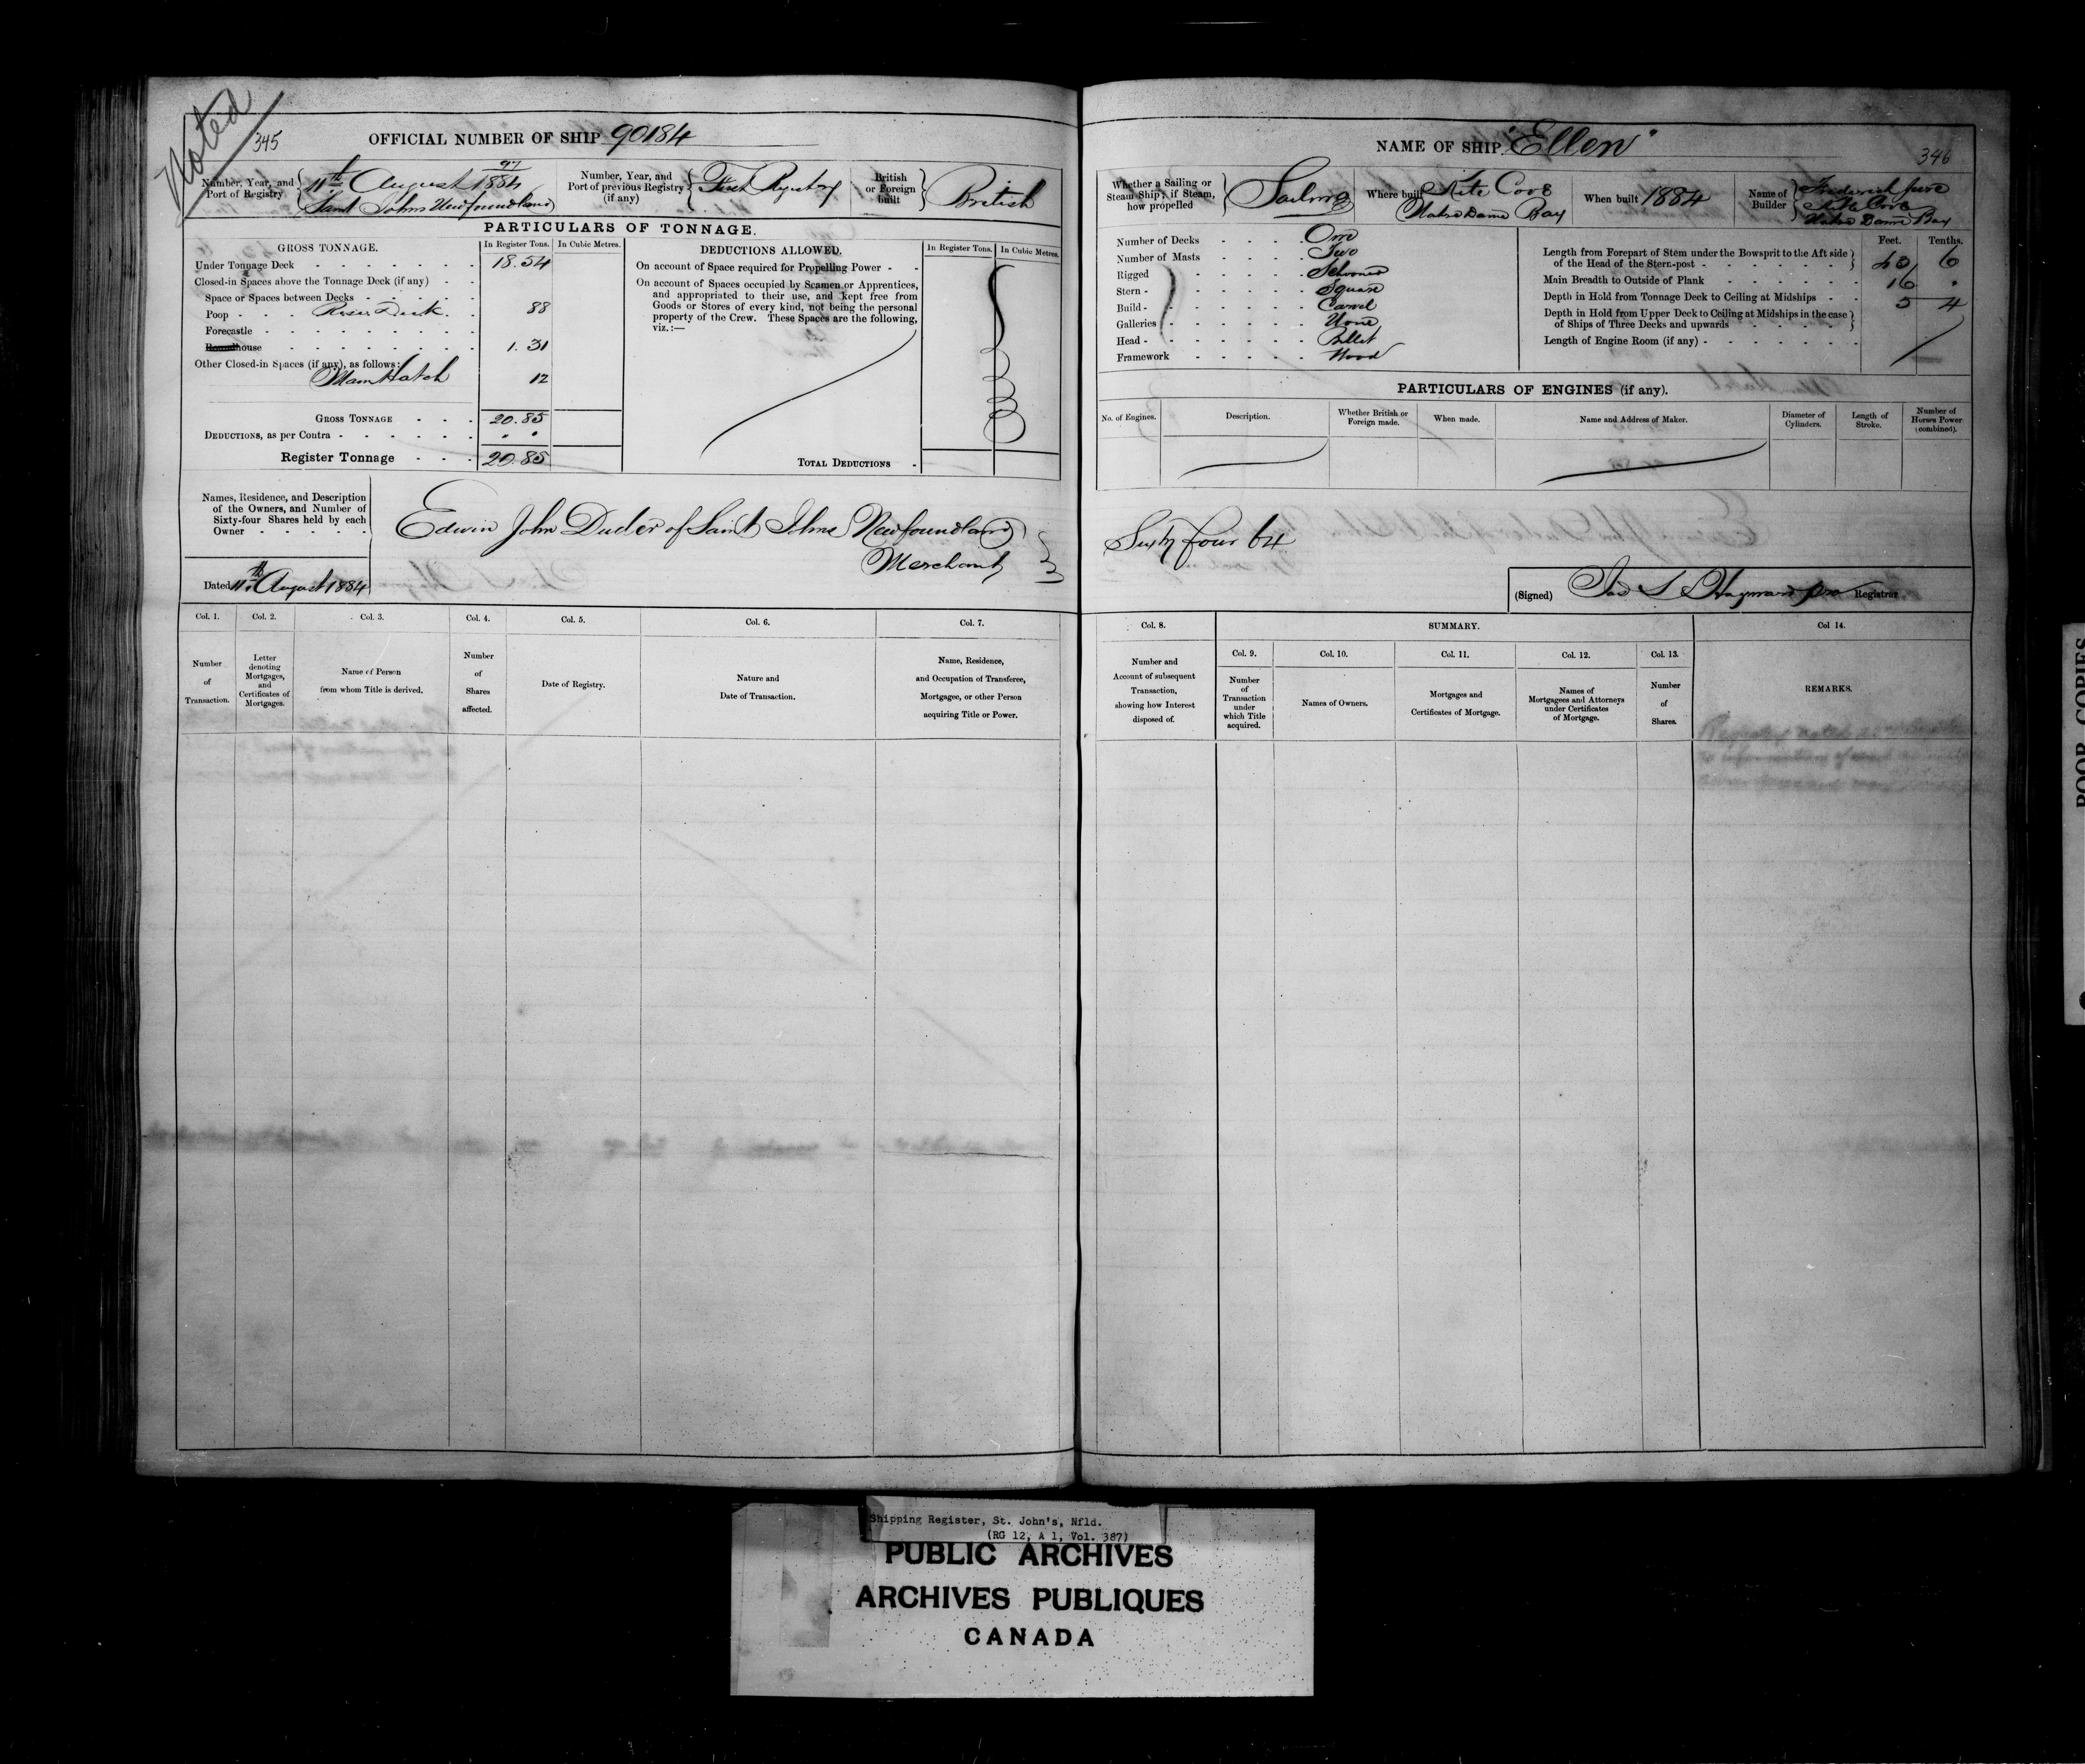 Noted
345
OFFICIAL NUMBER OF SHIP 90184
Number, Year, and Port of Registry
97
11th August 1884
Saint Johns Newfoundland
Number, Year, and Port of previous Registry (if any)
First Registry
British or Foreign built
British
PARTICULARS OF TONNAGE.
GROSS TONNAGE. In Register Tons. In Cubic Metres.
Under Tonnage Deck 18.54
Closed-in Spaces above the Tonnage Deck (if any)
Space or Spaces between Decks
Poop Riser Deck 88
Forecastle
Roundhouse 1.31
Other Closed-in Spaces (if any), as follows:
Main Hatch 12
GROSS TONNAGE 20.85
DEDUCTIONS, as per Contra
Register Tonnage 20.85
DEDUCTIONS ALLOWED. In Register Tons. In Cubic Metres.
On account of Space required for Propelling Power
On account of Spaces occupied by Seamen or Apprentices,
and appropriated to their use, and kept free from
Goods or Stores of every kind, not being the personal
property of the Crew. These Spaces are the following,
viz.:—
TOTAL DEDUCTIONS
Names, Residence, and Description
of the Owners, and Number of
Sixty-four Shares held by each
Owner
Edwin John Duder of Saint Johns Newfoundland
Merchant
Dated 11th August 1884
Col. 1. Col. 2. Col. 3. Col. 4. Col. 5. Col. 6. Col. 7.
Number of Transaction.
Letter denoting Mortgages, and Certificates of Mortgages.
Name of Person from whom Title is derived.
Number of Shares affected.
Date of Registry.
Nature and Date of Transaction.
Name, Residence, and Occupation of Transferee, Mortgagee, or other Person acquiring Title or Power.
NAME OF SHIP "Ellen"
346
Whether a Sailing or Steam Ship; if Steam, how propelled
Sailing
Where built
Kite Cove
Notre Dame Bay
When built 1884
Name of Builder
Frederick
Kite Cove
Notre Dame Bay
Number of Decks One
Number of Masts Two
Rigged Schooner
Stern Square
Build Carvel
Galleries None
Head Billet
Framework Wood
Feet. Tenths.
Length from Forepart of Stem under the Bowsprit to the Aft side
of the Head of the Stern-post 43 6
Main Breadth to Outside of Plank 16 .
Depth in Hold from Tonnage Deck to Ceiling at Midships 5 4
Depth in Hold from Upper Deck to Ceiling at Midships in the case
of Ships of Three Decks and upwards
Length of Engine Room (if any)
PARTICULARS OF ENGINES (if any).
No. of Engines. Description. Whether British or Foreign made. When made. Name and Address of Maker. Diameter of Cylinders. Length of Stroke. Number of Horses Power (combined).
Sixty four 64
(Signed) Hayward pro Registrar
Col. 8. SUMMARY. Col 14.
Number and Account of subsequent Transaction, showing how Interest disposed of.
Col. 9. Col. 10. Col. 11. Col. 12. Col. 13.
Number of Transaction under which Title acquired.
Names of Owners.
Mortgages and Certificates of Mortgage.
Names of Mortgagees and Attorneys under Certificates of Mortgage.
Number of Shares.
REMARKS.
POOR COPIES
Shipping Register, St. John's, Nfld.
(RG 12, A 1, Vol. 387)
PUBLIC ARCHIVES
ARCHIVES PUBLIQUES
CANADA